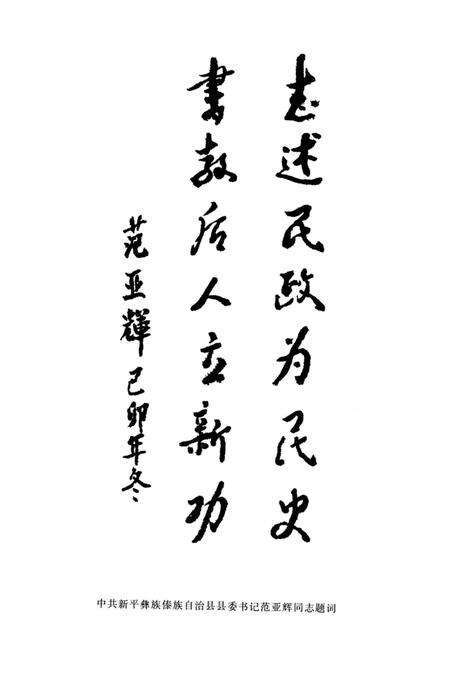 志述民政为民史
书教后人立新功
范亚輝己卯年冬
中共新平彝族傣族自治县县委书记范亚辉同志题词